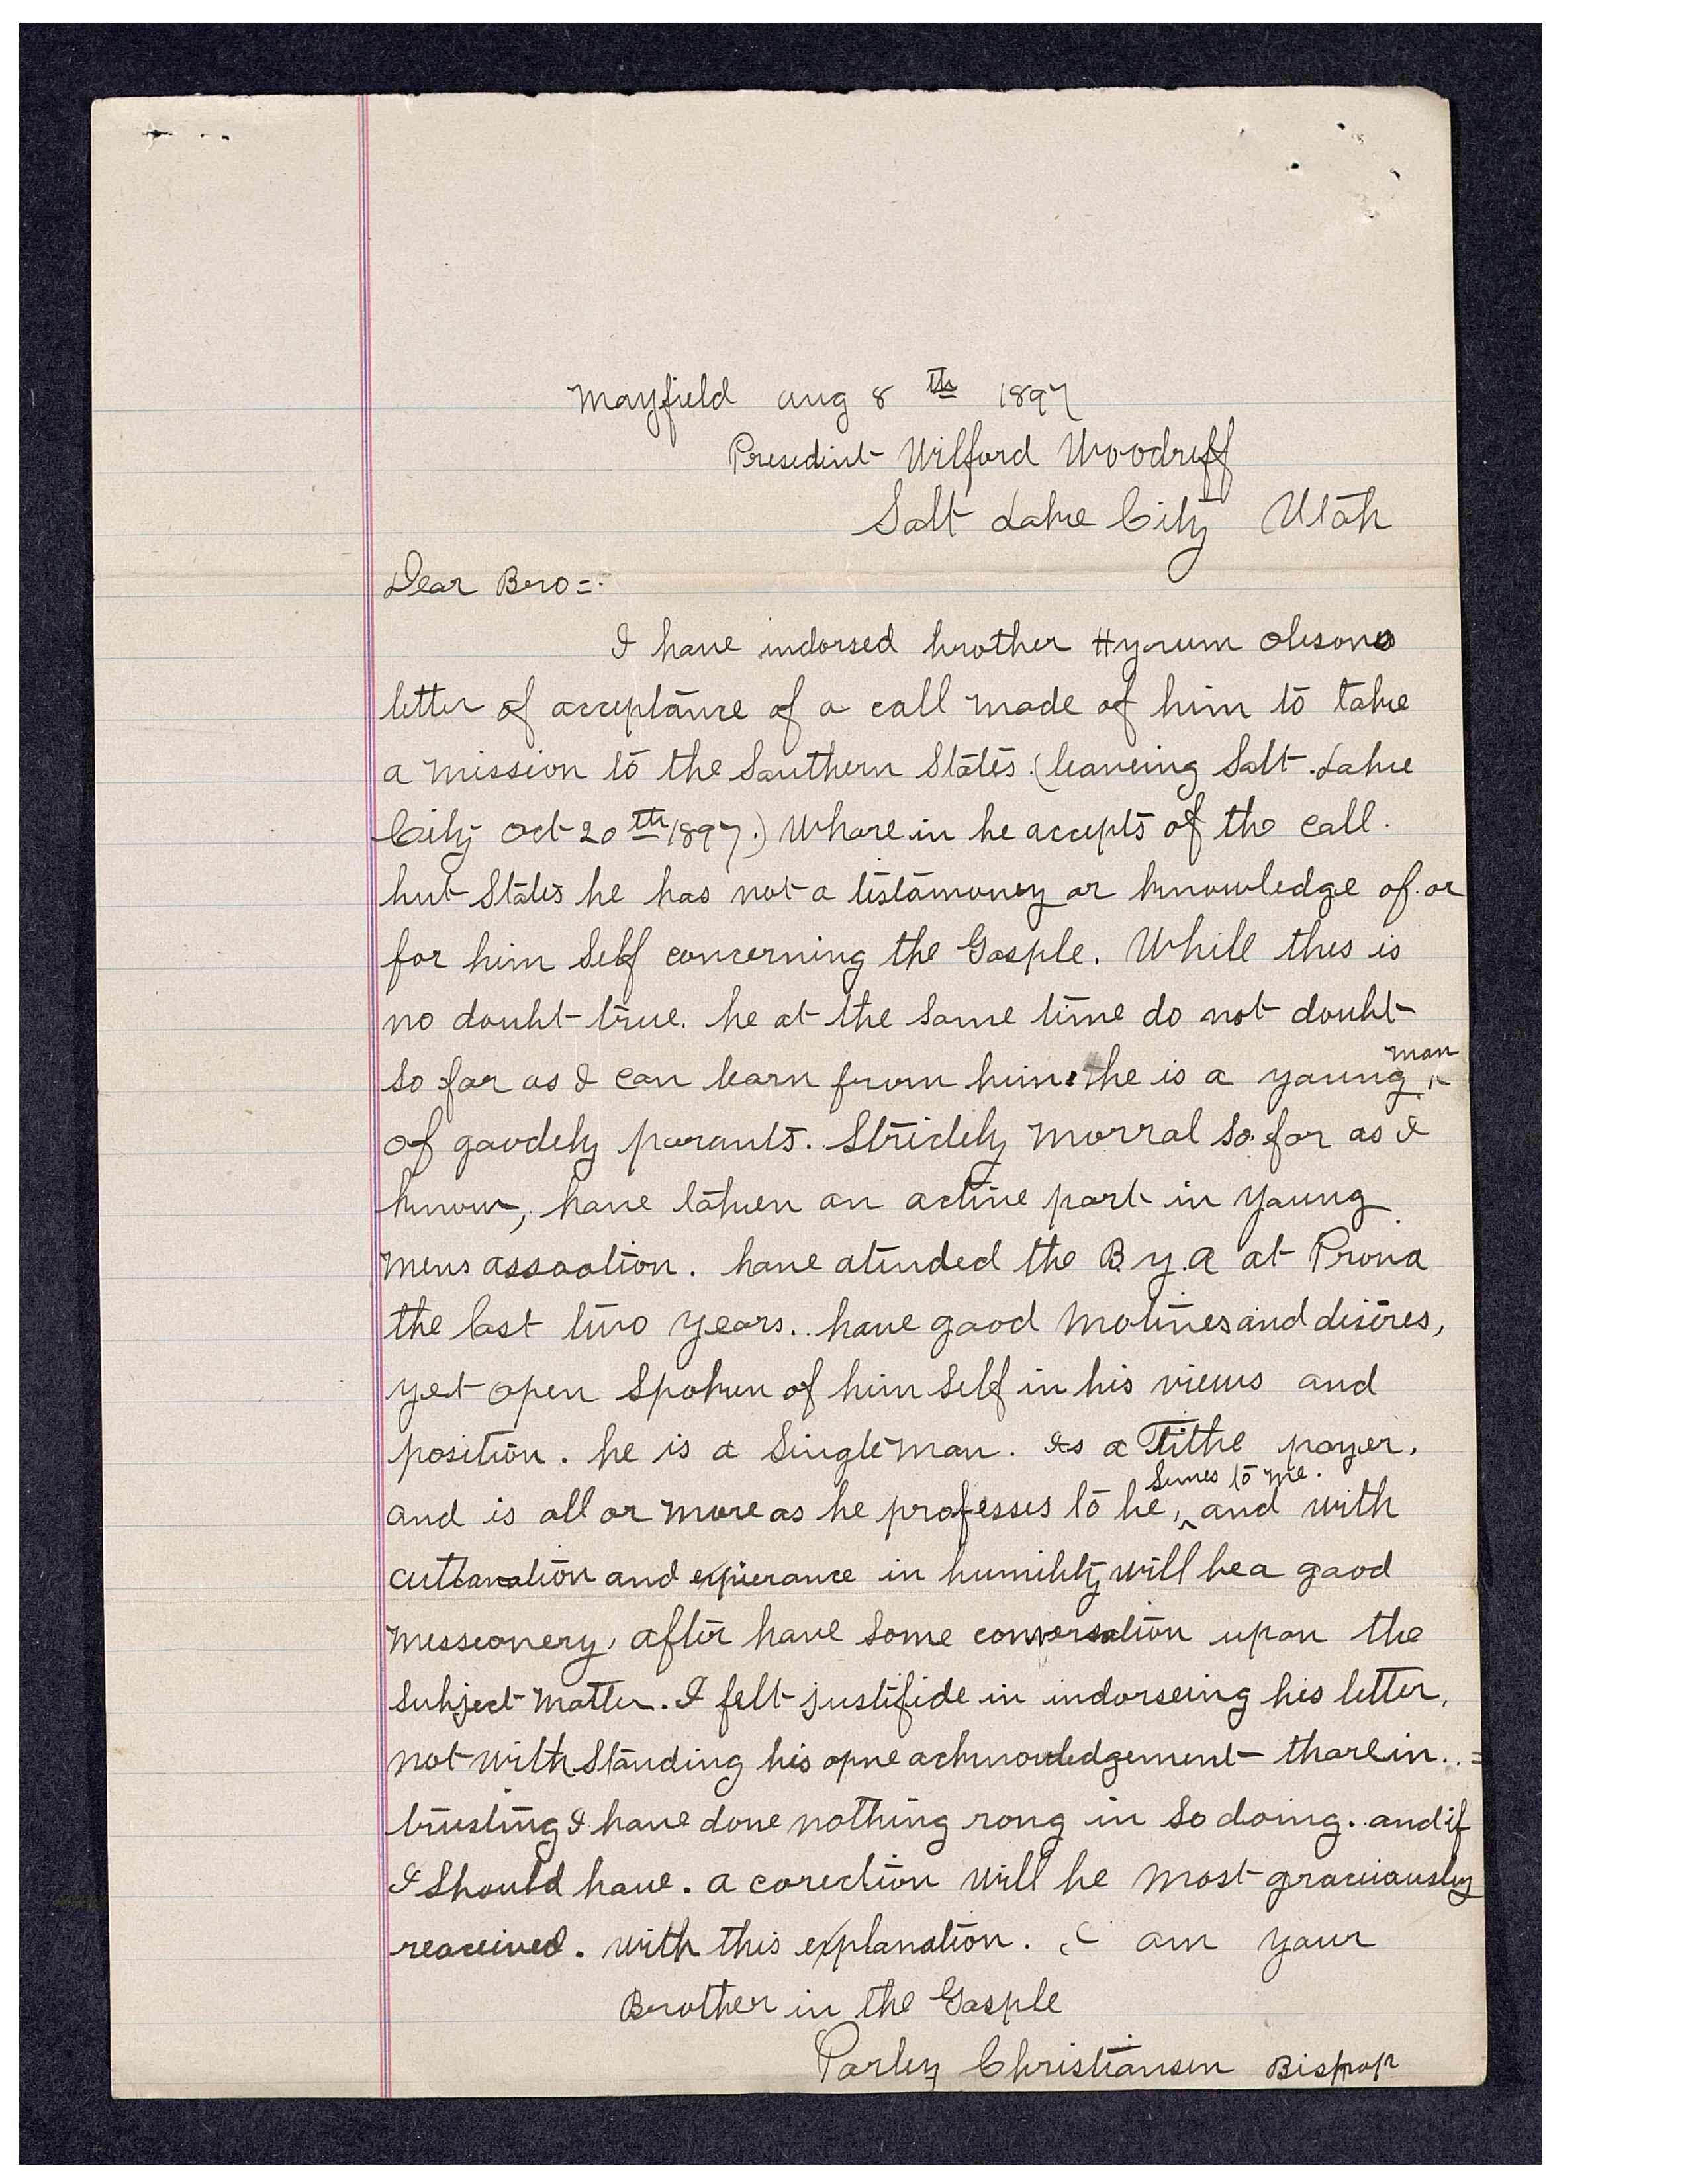 Mayfield aug 8th 1897
Presedint Wilford Woodruff
Salt Lake City Utah
Dear Bro=:
I have indorsed brother Hyrum Olesons
letter of acceptance of a call made of him to take
a mission to the Southern States. (leaveing Salt Lake
City Oct 20th 1897.) Wharein he accepts of the call.
but States he has not a testamoney or knowledge of or
for him Self concerning the Gosple. While this is
no doubt true. he at the same time do not doubt
so far as I can learn from him. he is a young man
of goodely parants. Strictely morral so far as I
know, have taken an active part in young
mens assoation. have atended the B.Y.A at Provo
the last two years. have good motives and desires,
yet open spoken of him self in his views and
position. he is a Single man. Is a Tithe payer.
and is all or more as he professes to be, Semes to me. and with
cultavation and expierance in humility will be a good
messionery, after have some conversation upon the
subject matter. I felt justifide in indorseing his letter,
not with standing his opne acknowledgement tharein. =
trusting I have done nothing rong in so doing. and if
I should have. a corection will be most graciously
reaceived. with this explanation. I am your
Brother in the Gosple
Parley Christiansen Bishop